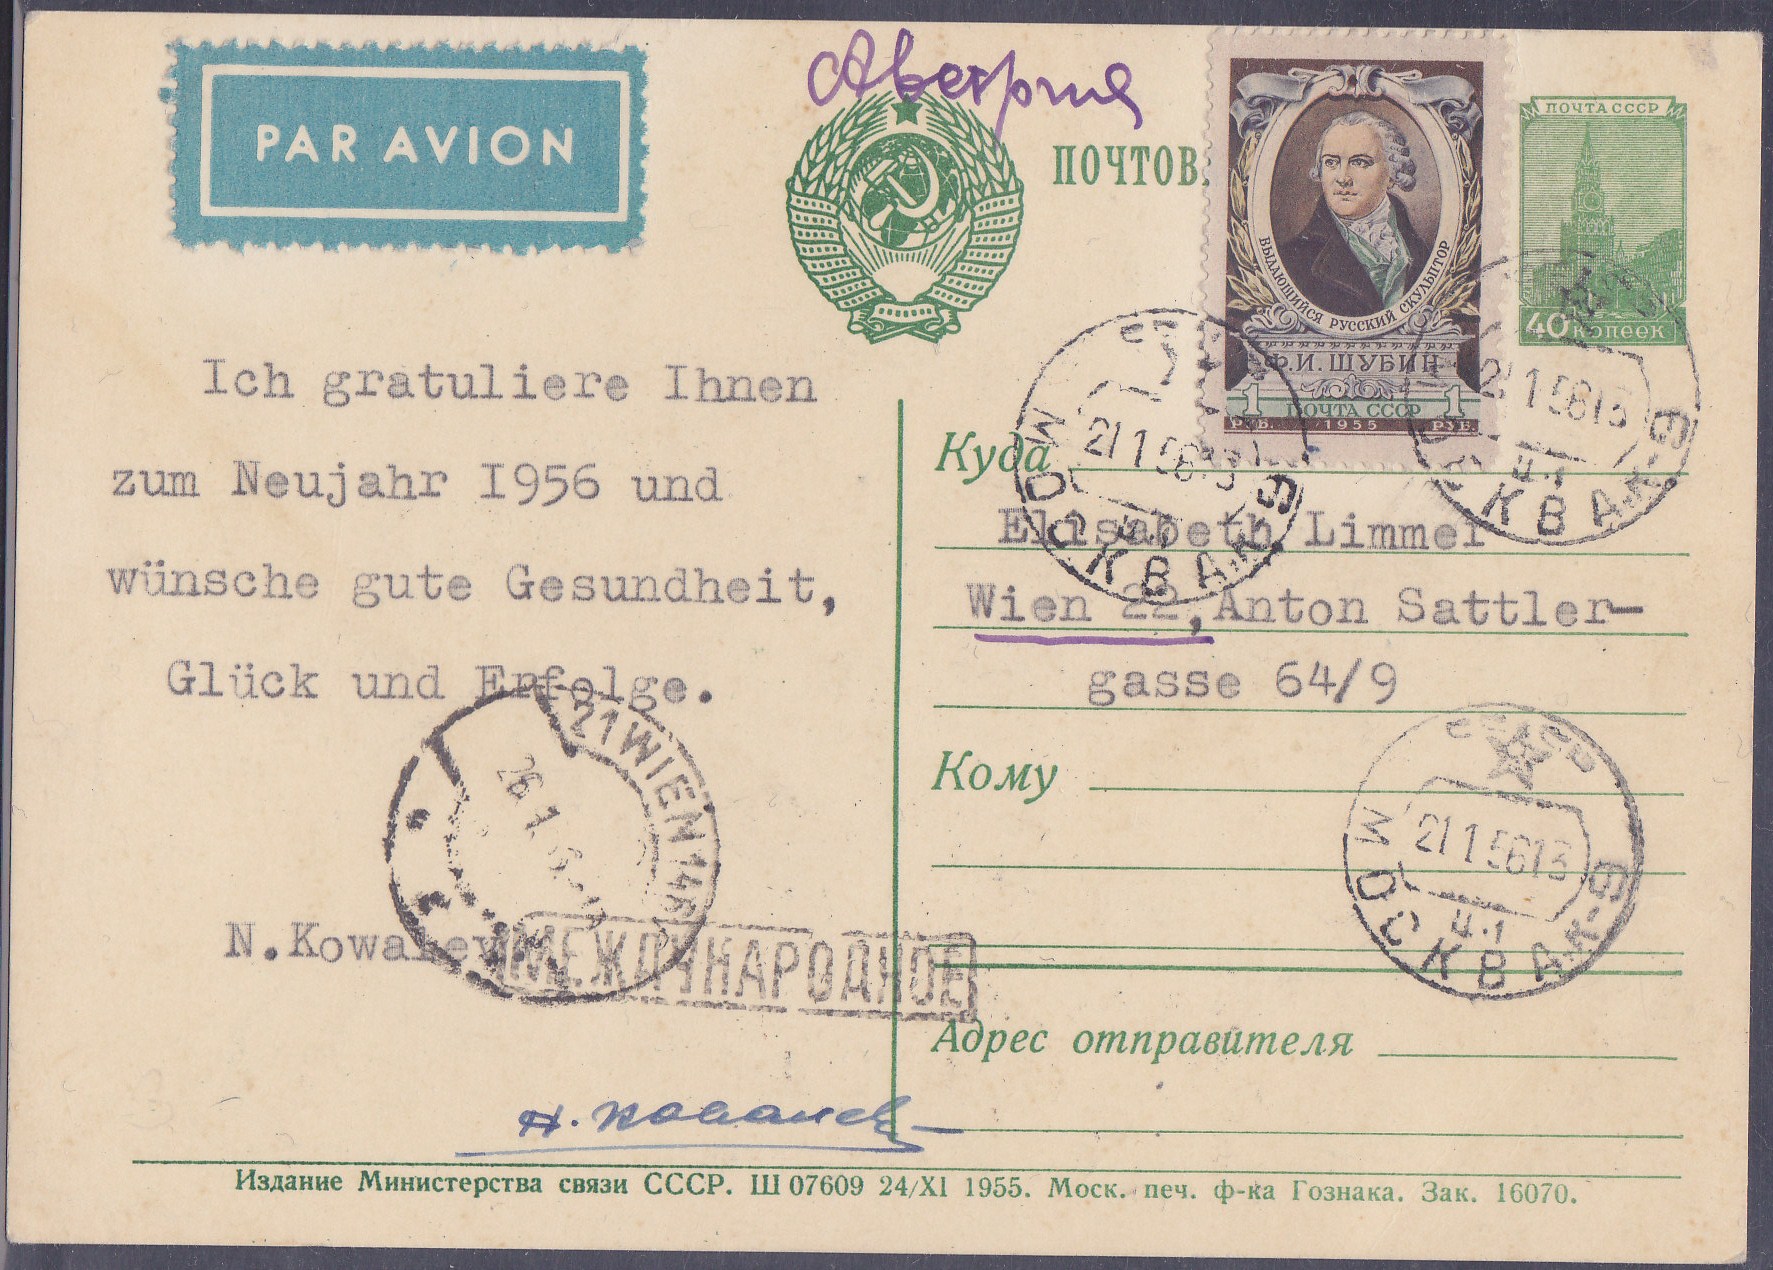 PAR AVION
Австрия
ПОЧТОВ
ПОЧТА СССР
40 КОПЕЕК
ВЫДАЮЩИЙСЯ РУССКИЙ СКУЛЬПТОР
Ф.И. ШУБИН
1 ПОЧТА СССР 1
РУБ. 1955 РУБ.
Ich gratuliere Ihnen
zum Neujahr 1956 und
wünsche gute Gesundheit,
Glück und Erfolge.
N.Kowalew
Н. Ковалев
Куда
Elisabeth Limmer
Wien 22, Anton Sattler-
gasse 64/9
Кому
Адрес отправителя
СССР
21 1 56 13
Ц.1
МОСКВА К-9
СССР
21 1 56 13
Ц.1
МОСКВА К-9
21 1 56 13
Ц.1
МОСКВА К-9
21 WIEN 146
26.1.
МЕЖДУНАРОДНОЕ
Издание Министерства связи СССР. Ш 07609 24/XI 1955. Моск. печ. ф-ка Гознака. Зак. 16070.